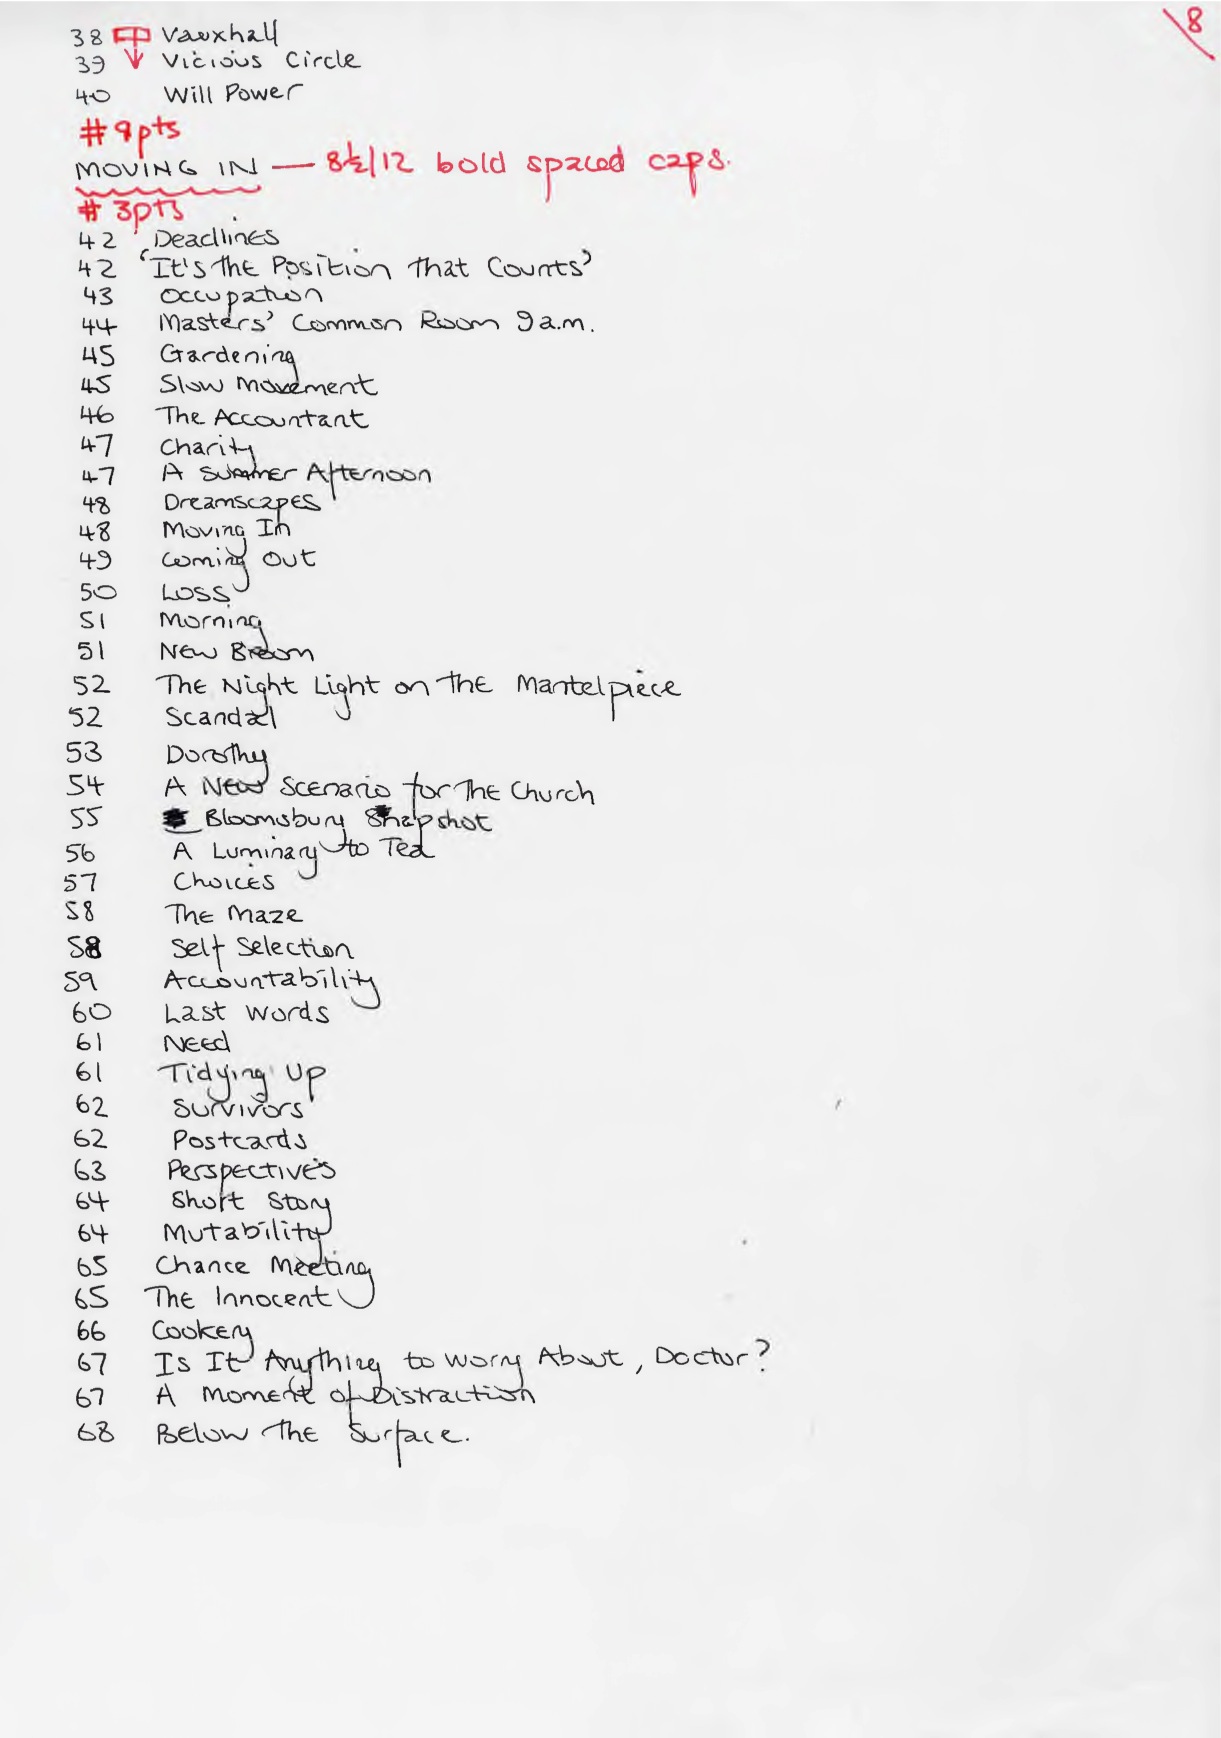 8
38 Vauxhall
39 Vicious Circle
40 Will Power
# 9pts
MOVING IN — 8½/12 bold spaced caps.
# 3pts
42 Deadlines
42 'It's the Position that Counts'
43 Occupation
44 Masters' Common Room 9 a.m.
45 Gardening
45 Slow Movement
46 The Accountant
47 Charity
47 A Summer Afternoon
48 Dreamscapes
48 Moving In
49 Coming Out
50 Loss
51 Morning
51 New Broom
52 The Night Light on the Mantelpiece
52 Scandal
53 Dorothy
54 A New Scenario for the Church
55 Bloomsbury Snapshot
56 A Luminary to Tea
57 Choices
58 The Maze
58 Self Selection
59 Accountability
60 Last Words
61 Need
61 Tidying Up
62 Survivors
62 Postcards
63 Perspectives
64 Short Story
64 Mutability
65 Chance Meeting
65 The Innocent
66 Cookery
67 Is It Anything to Worry About, Doctor?
67 A Moment of Distraction
68 Below the Surface.